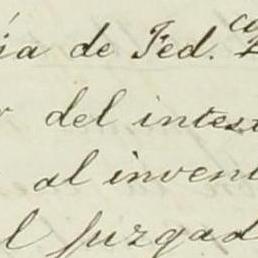 ia de Fed.co
del intest
al inven
l Juzgad